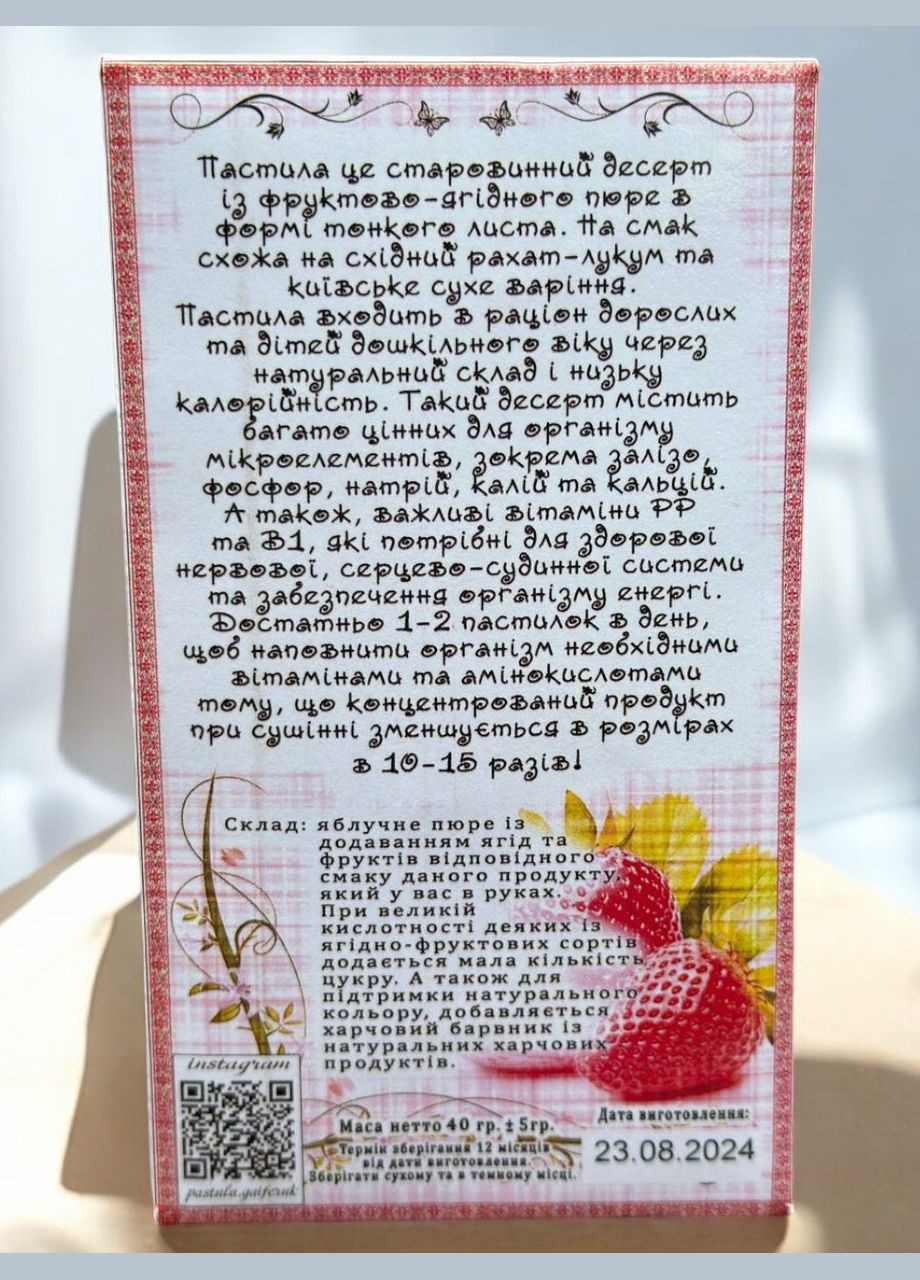 Пастила це старовинний десерт
із фруктово-ягідного пюре в
формі тонкого листа. На смак
схожа на східний рахат-лукум та
київське сухе варіння.
Пастила входить в раціон дорослих
та дітей дошкільного віку через
натуральний склад і низьку
калорійність. Такий десерт містить
багато цінних для організму
мікроелементів, зокрема залізо,
фосфор, натрій, калій та кальцій.
А також, важливі вітаміни РР
та В1, які потрібні для здорової
нервової, серцево-судинної системи
та забезпечення організму енергі.
Достатньо 1-2 пастилок в день,
щоб наповнити організм необхідними
вітамінами та амінокислотами
тому, що концентрований продукт
при сушінні зменшується в розмірах
в 10-15 разів!
Склад: яблучне пюре із
додаванням ягід та
фруктів відповідного
смаку даного продукту,
який у вас в руках.
При великій
кислотності деяких із
ягідно-фруктових сортів
додається мала кількість
цукру. А також для
підтримки натурального
кольору, добавляється
харчовий барвник із
натуральних харчових
продуктів.
instagram
pastula.gaiferuk
Маса нетто 40 гр. ± 5гр.
Термін зберігання 12 місяців
від дати виготовлення.
Зберігати сухому та в темному місці.
Дата виготовлення:
23.08.2024